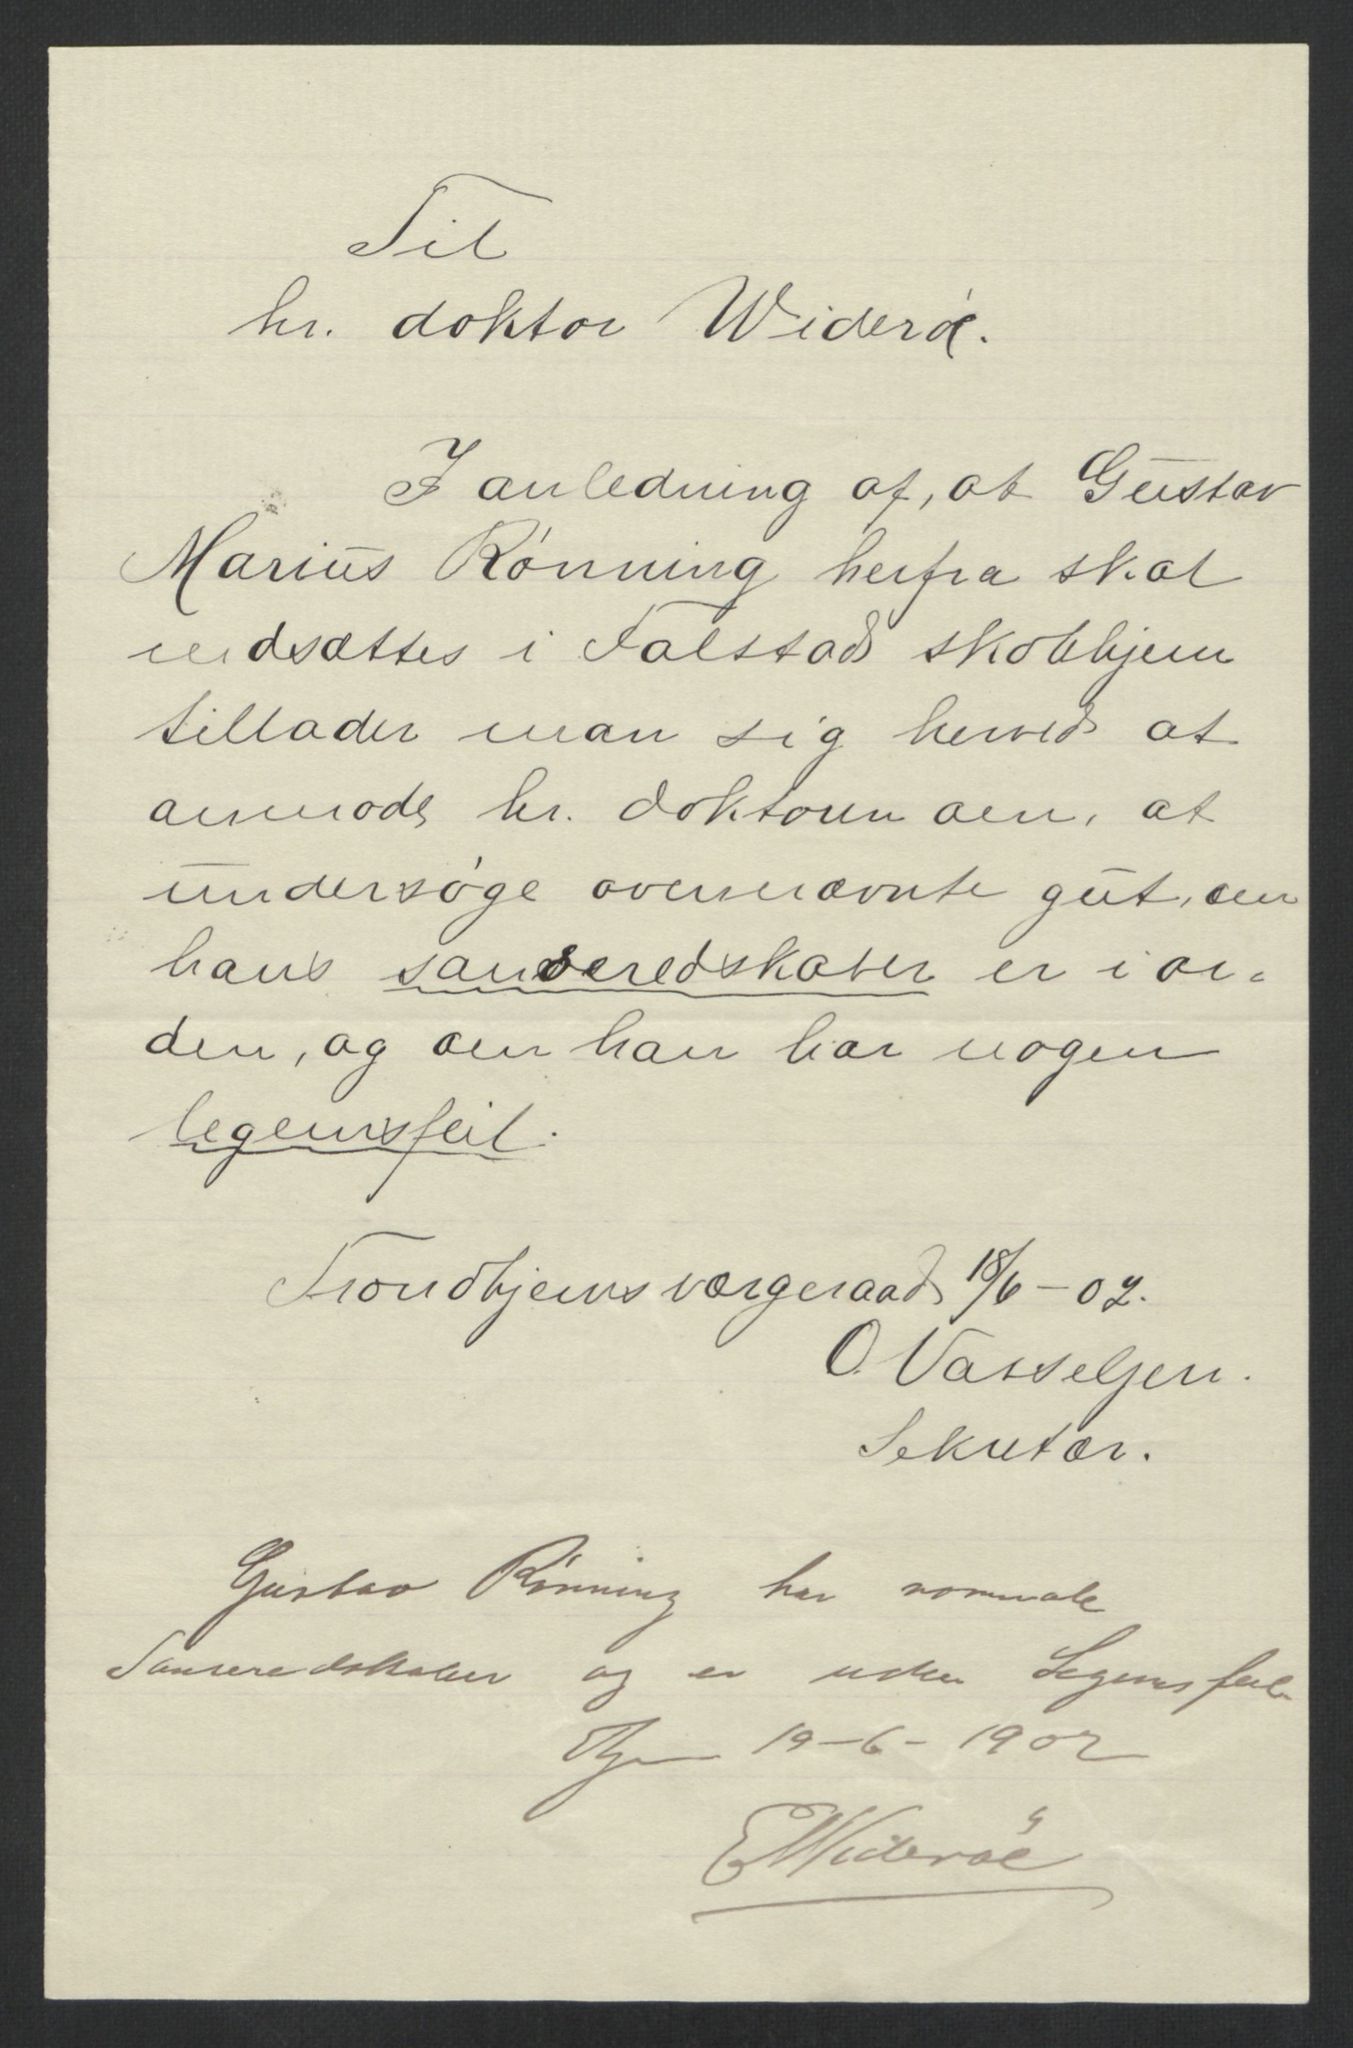 Til
hr. doktor Widerøe.
I anledning af, at Gustav
Marius Rønning herfra skal
indsættes i Falstad skolehjem
tillader man sig herved at
anmode hr. doktoren om, at
undersøge ovennævnte gut, om
hans sanseredskaber er i or-
den, og om han har nogen
legemsfeil.
Trondhjems værgeraad 18/6 - 02.
O. Vasseljen.
Sekretær.
Gustav Rønning har normale
Sanseredskaber og er uden Legemsfeil.
Thjem 19-6-1902
E Widerøe